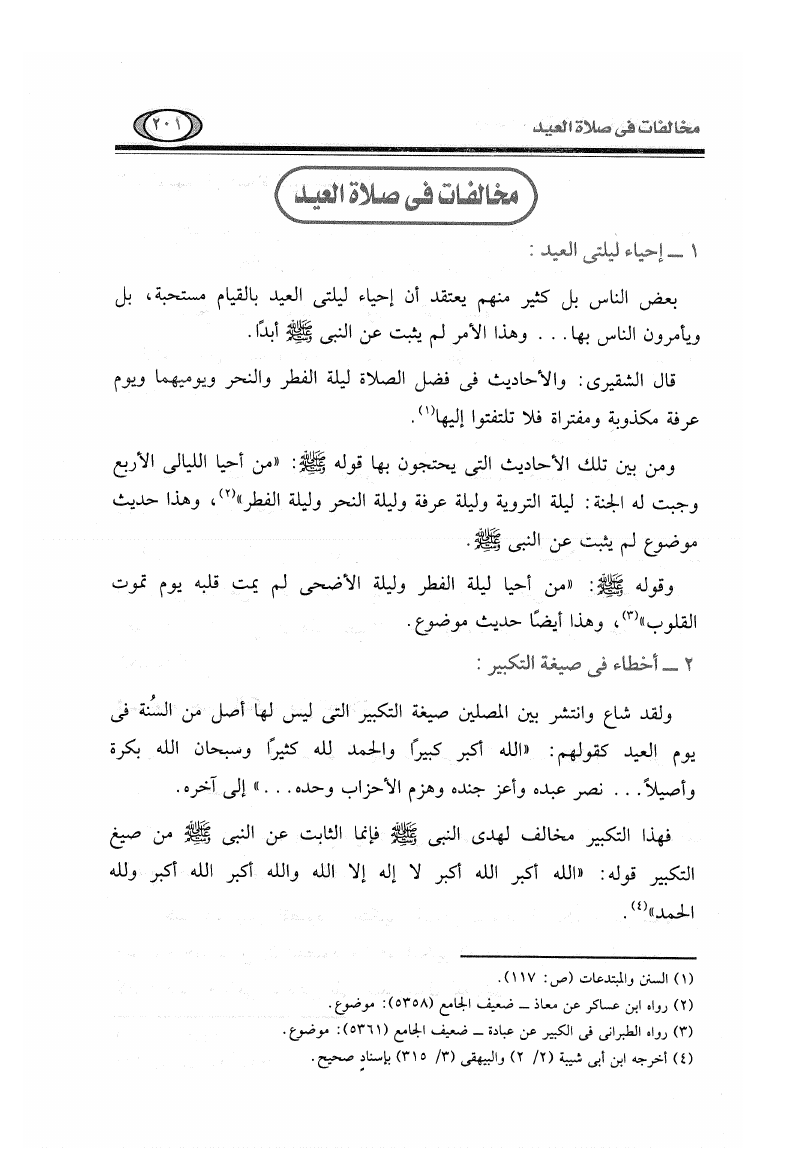 مخالفات فى صلاة العيد
٢٠١
مخالفات فى صلاة العيد
١ ــ إحياء ليلتى العيد :
بعض الناس بل كثير منهم يعتقد أن إحياء ليلتى العيد بالقيام مستحبة، بل
ويأمرون الناس بها... وهذا الأمر لم يثبت عن النبى ﷺ أبدًا.
قال الشقيرى: والأحاديث فى فضل الصلاة ليلة الفطر والنحر ويوميهما ويوم
عرفة مكذوبة ومفتراة فلا تلتفتوا إليها(١).
ومن بين تلك الأحاديث التى يحتجون بها قوله ﷺ: «من أحيا الليالى الأربع
وجبت له الجنة: ليلة التروية وليلة عرفة وليلة النحر وليلة الفطر»(٢)، وهذا حديث
موضوع لم يثبت عن النبى ﷺ.
وقوله ﷺ: «من أحيا ليلة الفطر وليلة الأضحى لم يمت قلبه يوم تموت
القلوب»(٣)، وهذا أيضًا حديث موضوع.
٢ ــ أخطاء فى صيغة التكبير :
ولقد شاع وانتشر بين المصلين صيغة التكبير التى ليس لها أصل من السُنة فى
يوم العيد كقولهم: «الله أكبر كبيرًا والحمد لله كثيرًا وسبحان الله بكرة
وأصيلاً... نصر عبده وأعز جنده وهزم الأحزاب وحده...» إلى آخره.
فهذا التكبير مخالف لهدى النبى ﷺ فإنما الثابت عن النبى ﷺ من صيغ
التكبير قوله: «الله أكبر الله أكبر لا إله إلا الله والله أكبر الله أكبر ولله
الحمد»(٤).
(١) السنن والمبتدعات (ص: ١١٧).
(٢) رواه ابن عساكر عن معاذ ــ ضعيف الجامع (٥٣٥٨): موضوع.
(٣) رواه الطبرانى فى الكبير عن عبادة ــ ضعيف الجامع (٥٣٦١): موضوع.
(٤) أخرجه ابن أبى شيبة (٢/ ٢) والبيهقى (٣/ ٣١٥) بإسنادٍ صحيح.